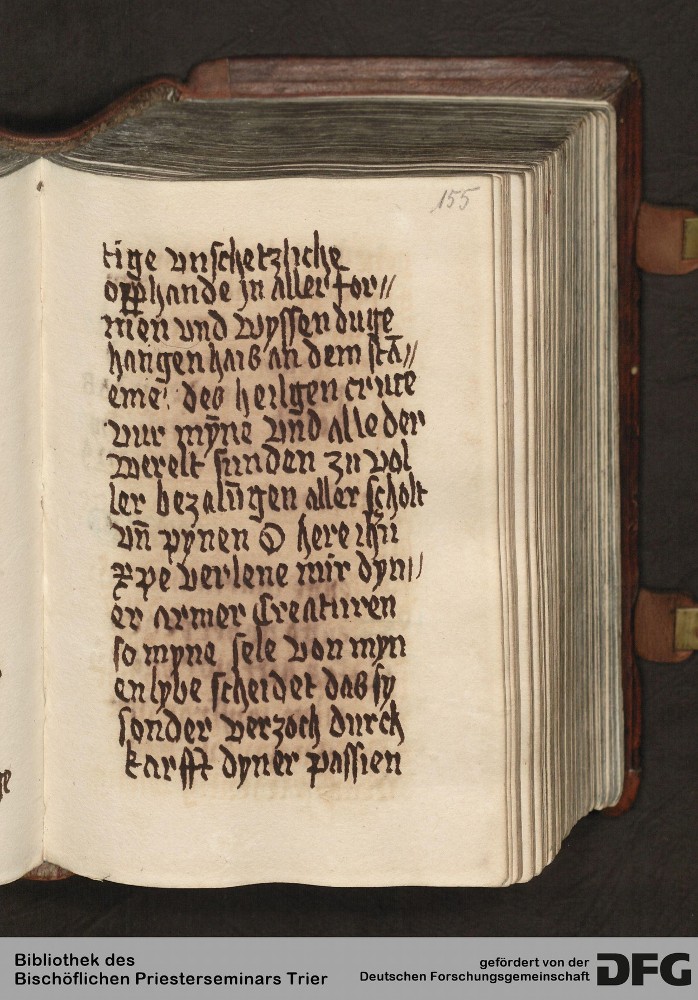 155
tige vnschetzliche
opphande jn aller for//
men vnd wyssen du ge
hangen haiß an dem stā//
eme: des heilgen cruce
vur myne vnd alle der
werelt sunden zu vol
ler bezalūgen aller scholt
vn̄ pynen O here ihū
xpe verlene mir dyn//
er armer Creaturen
so myne sele von myn
en lybe scheidet daß sy
sonder verzoch durch
karfft dyner passien
Bibliothek des
Bischöflichen Priesterseminars Trier
gefördert von der
Deutschen Forschungsgemeinschaft
DFG